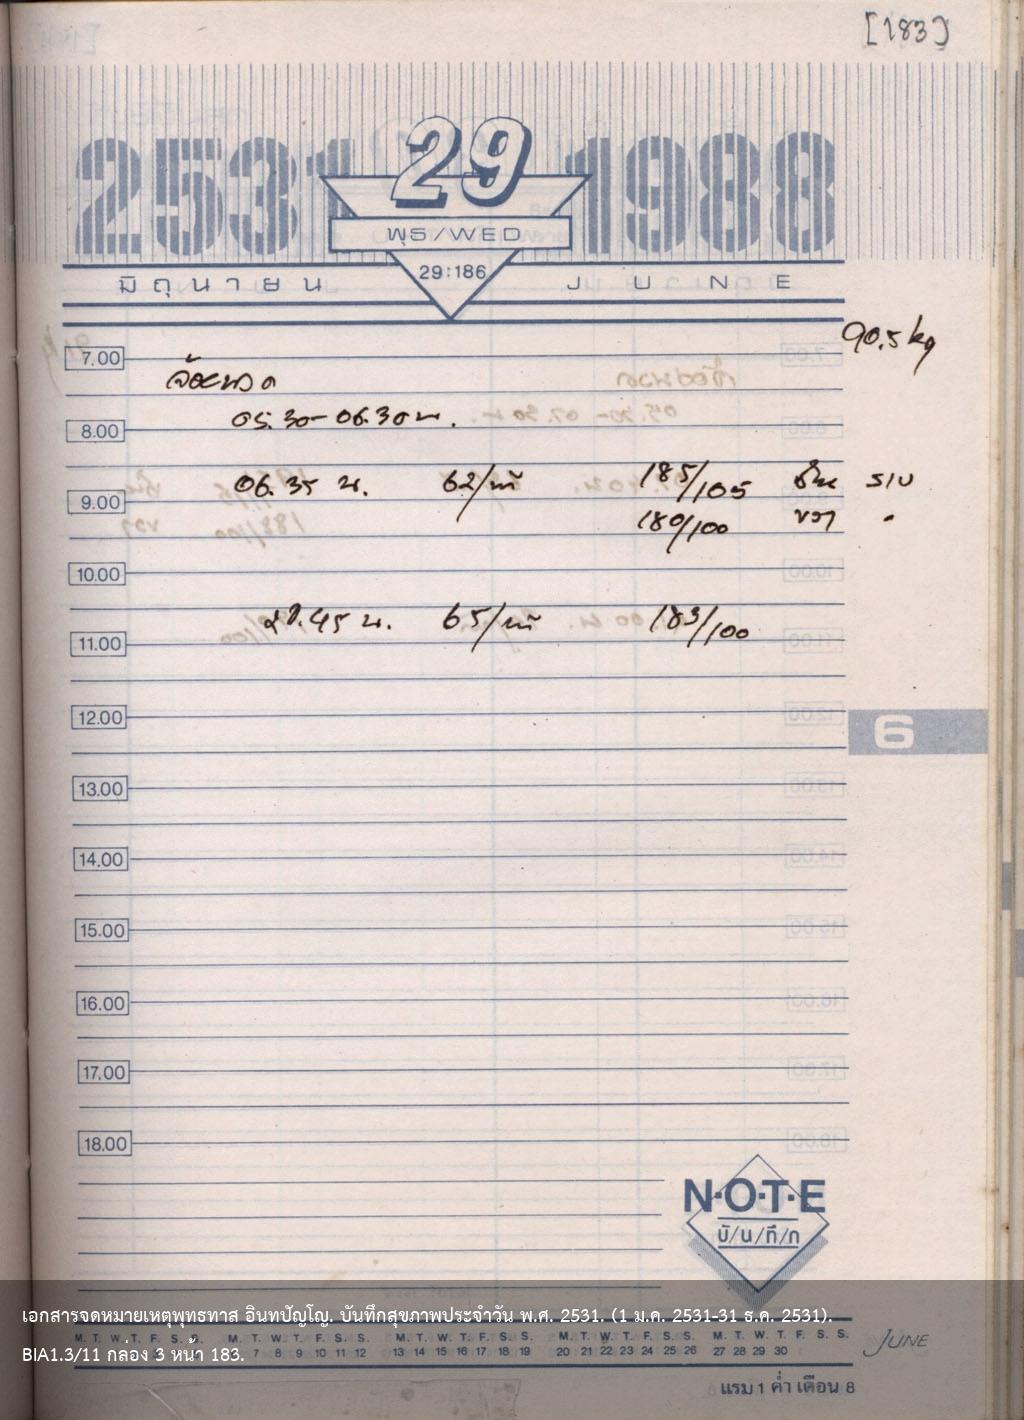 [183]
2531 29 1988
พุธ/WED
29:186
มิถุนายน JUNE
90.5 kg
7.00
05.30-06.30 น.
8.00
06.35 น. 62/นาที 185/105 ยืน
9.00
180/100 ขวา "
10.00
21.45 น. 65/นาที 183/100
11.00
12.00
6
13.00
14.00
15.00
16.00
17.00
18.00
N·O·T·E
บั/น/ทึ/ก
เอกสารจดหมายเหตุพุทธทาส อินทปัญโญ. บันทึกสุขภาพประจำวัน พ.ศ. 2531. (1 ม.ค. 2531-31 ธ.ค. 2531).
M. T. W. T. F. S. S. M. T. W. T. F. S. S. M. T. W. T. F. S. S. M. T. W. T. F. S. S. M. T. W. T. F. S. S. JUNE
7 8 9 10 11 12 13 14 15 16 17 18 19 20 21 22 23 24 25 26 27 28 29 30
BIA1.3/11 กล่อง 3 หน้า 183.
แรม 1 ค่ำ เดือน 8